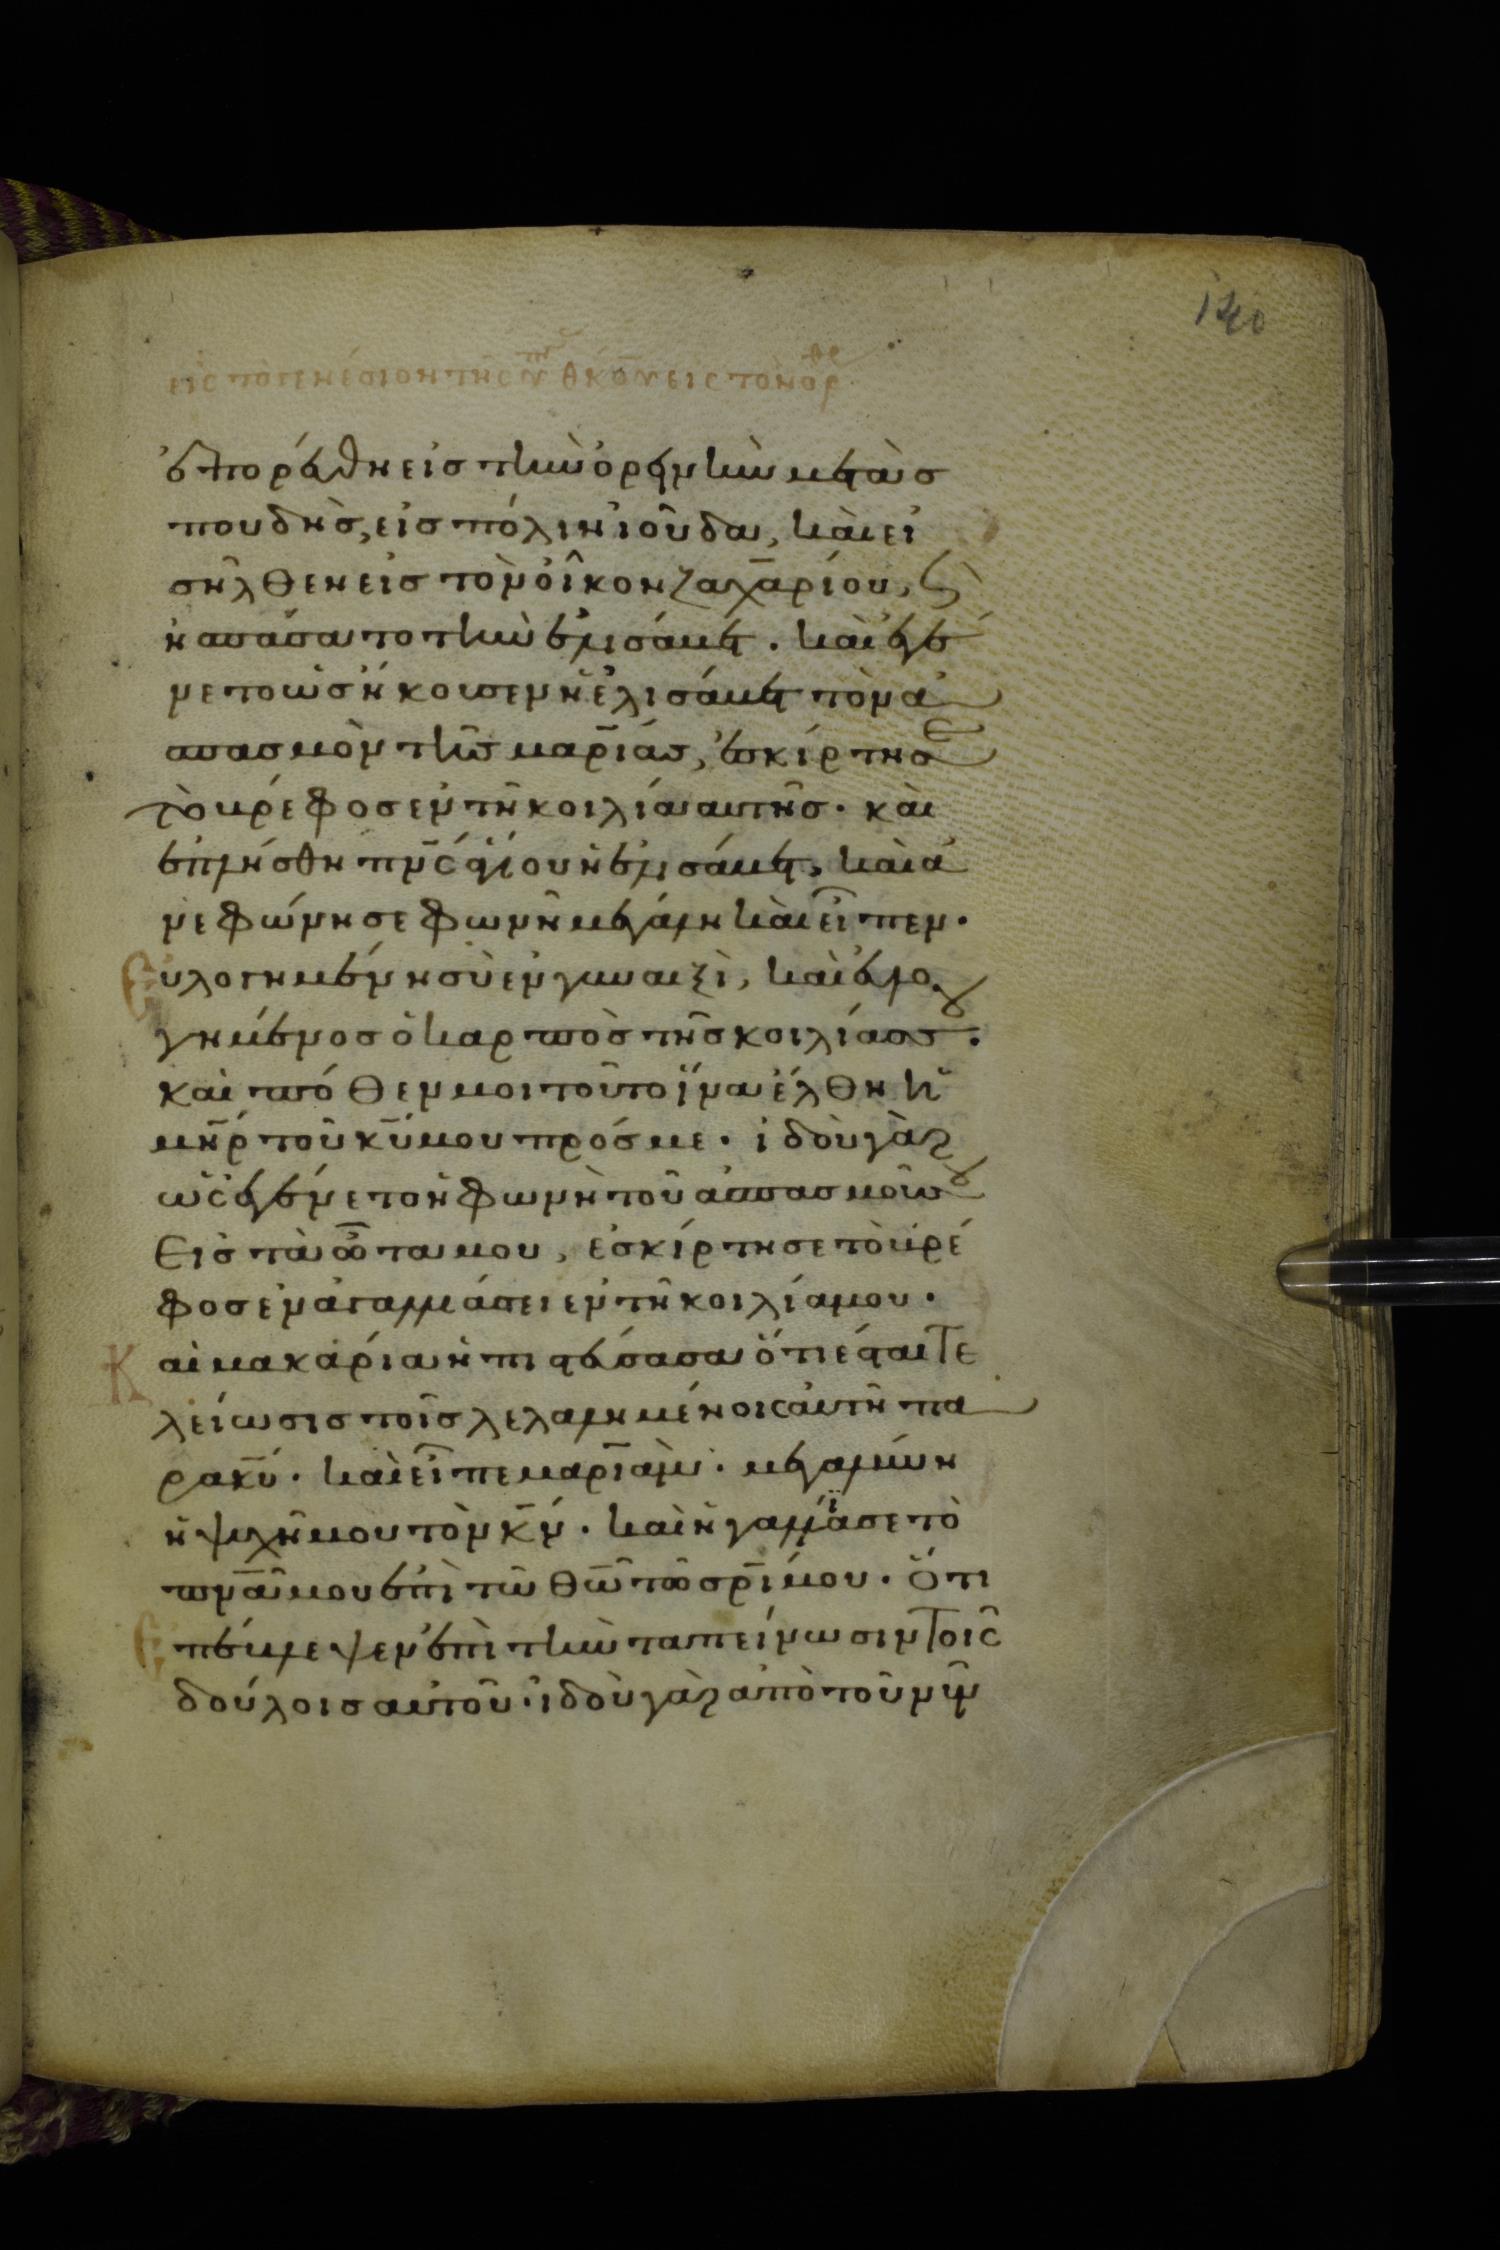 120
εἰς τὸ γενέσιον τῆς ὑπ θκου εἰς τὸν ορθ
ἐπορεύθη εἰσ τὴν ὀρεινὴν μετὰ σ
πουδῆσ, εἰσ πόλιν ἰούδα, καὶ εἰ
σῆλθεν εἰσ τὸν οἶκον ζαχαρίου, κὶ
ἠσπάσατο τὴν ἐλισάβετ. καὶ ἐγέ
νετο ὡσ ἤκουσεν ἡ ἐλισάβετ τὸν ἀ
σπασμὸν τῆσ μαρίασ, ἐσκίρτησε
τὸ βρέφοσ ἐν τῆ κοιλία αὐτῆσ. καὶ
ἐπλήσθη πνς ἁγίου ἡ ἐλισάβετ, καὶ ἀ
νεφώνησε φωνῆ μεγάλη καὶ εἶπεν.
Εὐλογημένη σὺ ἐν γυναιξὶ, καὶ εὐλο
γημένοσ ὁ καρπὸσ τῆσ κοιλίασ σου.
καὶ πόθεν μοι τοῦτο ἵνα ἔλθη ἡ
μηρ τοῦ κυ μου πρόσ με. ἰδοὺ γὰρ
ὡς ἐγένετο ἡ φωνὴ τοῦ ἀσπασμοῦ σου
εἰσ τὰ ὦτα μου, ἐσκίρτησε τὸ βρέ
φοσ ἐν ἀγαλλιάσει ἐν τῆ κοιλία μου.
Καὶ μακαρία ἡ πιστεύσασα ὅτι ἔσται τε
λείωσισ τοῖσ λελαλημένοις αὐτῆ πα
ρὰ κυ. καὶ εἶπε μαριάμ. μεγαλύνη
ἡ ψυχή μου τὸν κν. καὶ ἠγαλλίασε τὸ
πνα μου ἐπὶ τῶ θω τῶ σρι μου. ὅτι
Ἐπέβλεψεν ἐπὶ τὴν ταπείνωσιν τοῖς
δούλοισ αὐτοῦ. ἰδοὺ γὰρ ἀπὸ τοῦ νῦν